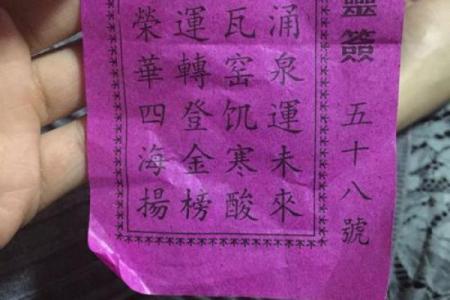 靈簽 五十八號
涌泉運未來
瓦窑饥寒酸
運轉登金榜
榮華四海揚